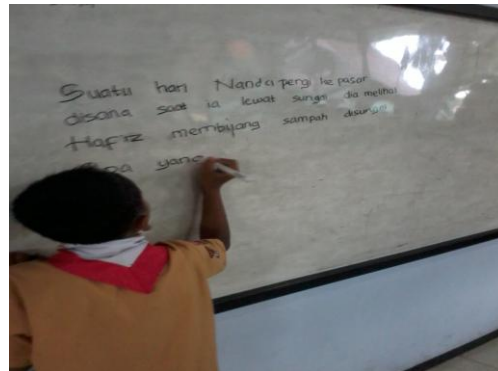 Suatu hari Nanda pergi ke pasar
disana saat ia lewat sungai dia melihat
Hafiz membuang sampah disungai
yang